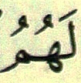 لَهُمُ